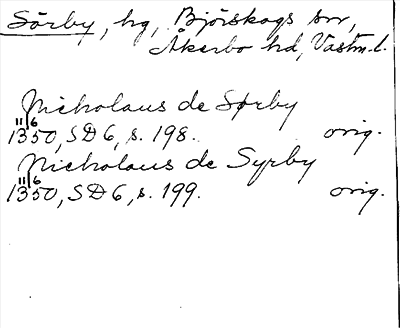 Sörby, hg, Björskogs sn,
Åkerbo hd, Vastm.l.
Nicholaus de Sørby
11/6 1350, SD 6, s. 198. orig.
Nicholaus de Syrby
11/6 1350, SD 6, s. 199. orig.